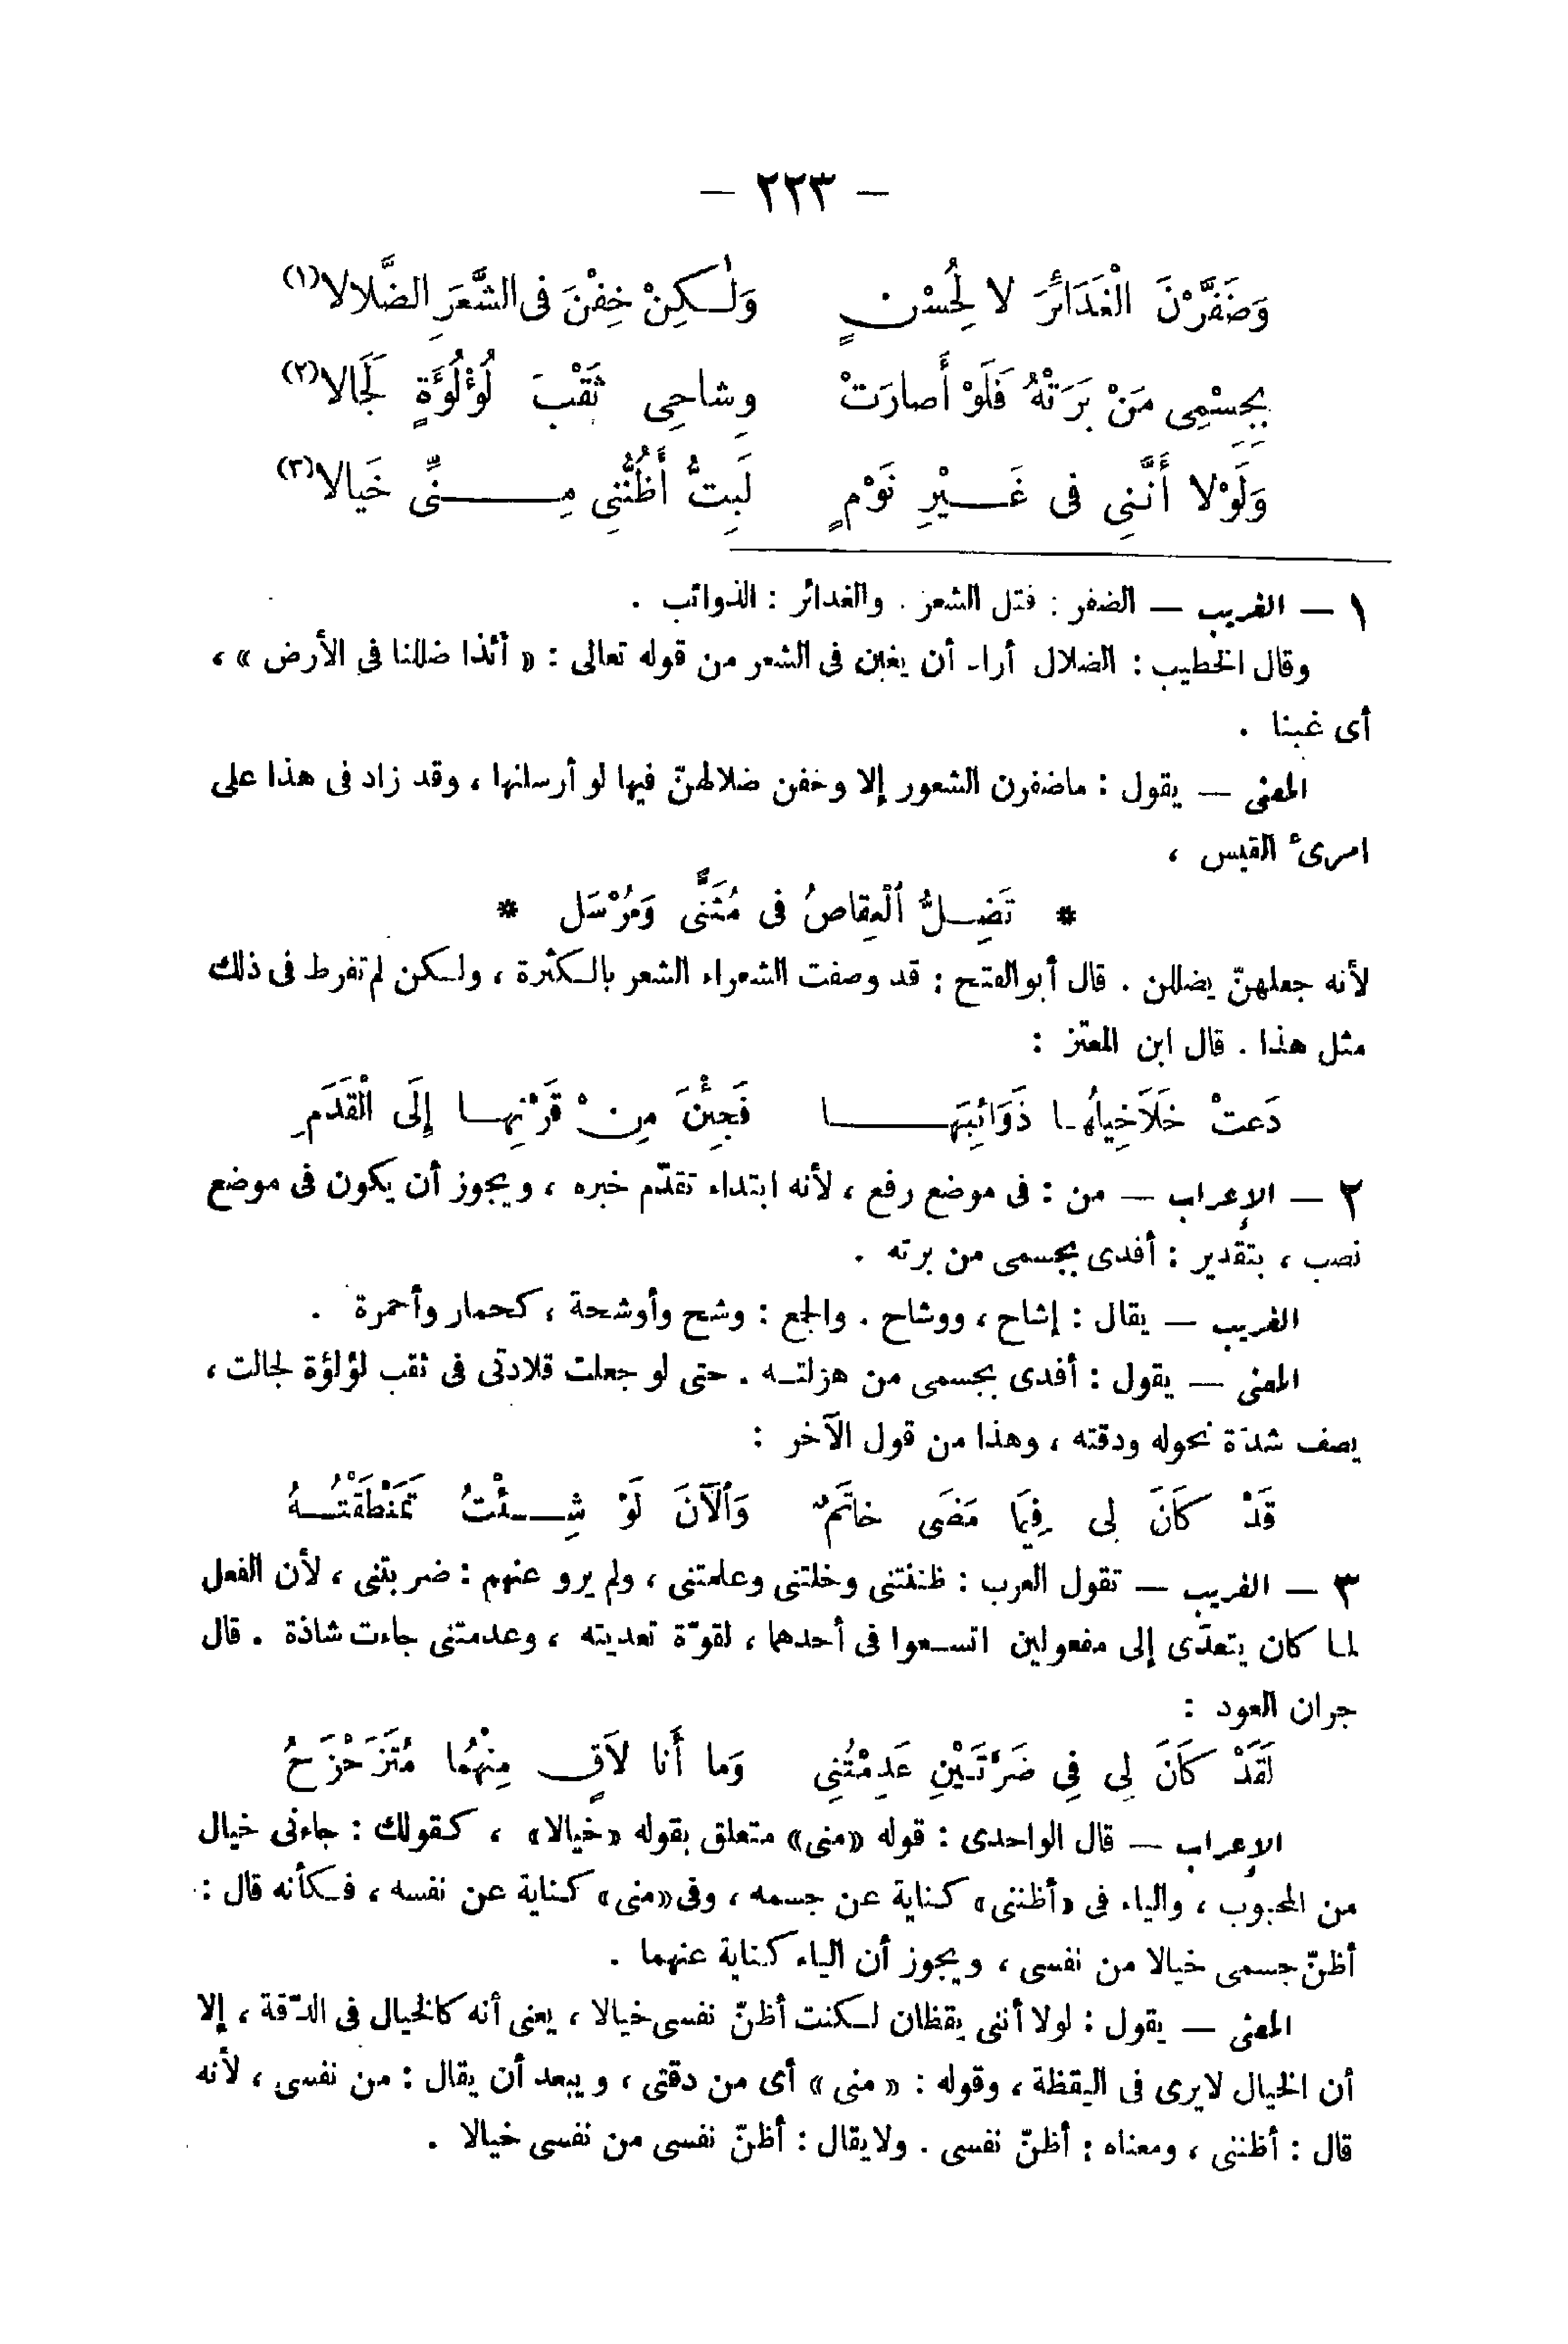 — ٢٢٣ —
وَضَفَّرْنَ الْغَدَائِرَ لا لِحُسْنٍ وَلٰكِنْ خِفْنَ فى الشَّعَرِ الضَّلالا(١)
بِجِسْمِى مَنْ بَرَتْهُ فَلَوْ أَصارَتْ وِشاحِى ثَقْبَ لُؤْلُؤَةٍ لَجَالا(٢)
وَلَوْلا أَنَّنِى فى غَيْرِ نَوْمٍ لَبِتُّ أَظُنُّنِى مِنِّى خَيالا(٣)
١ — الغريب — الضفر : فتل الشعر . والغدائر : الذوائب .
وقال الخطيب : الضلال أراد أن يغبن فى الشعر من قوله تعالى : « أئذا ضللنا فى الأرض » ،
أى غبنا .
المعنى — يقول : ماضفرن الشعور إلا وخفن ضلالهنّ فيها لو أرسلنها ، وقد زاد فى هذا على
امرئ القيس ،
* تَضِلُّ ٱلْعِقاصُ فى مُثَنًّى وَمُرْسَل *
لأنه جعلهنّ يضللن . قال أبوالفتح : قد وصفت الشعراء الشعر بالكثرة ، ولكن لم تفرط فى ذلك
مثل هذا . قال ابن المعتز :
دَعتْ خَلَاخِيلُهَا ذَوَائِبَهَا فَجِئْنَ مِنْ قَرْنِها إِلَى الْقَدَمِ
٢ — الإعراب — من : فى موضع رفع ، لأنه ابتداء تقدّم خبره ، ويجوز أن يكون فى موضع
نصب ، بتقدير : أفدى بجسمى من برته .
الغريب — يقال : إشاح ، ووشاح . والجمع : وشح وأوشحة ، كحمار وأحمرة .
المعنى — يقول : أفدى بجسمى من هزلته . حتى لو جعلت قلادتى فى ثقب لؤلؤة لجالت ،
يصف شدّة نحوله ودقته ، وهذا من قول الآخر :
قَدْ كَانَ لِى فِيمَا مَضَى خاتَمٌ وَٱلْآنَ لَوْ شِئْتُ تَمَنْطَقْتُهُ
٣ — الغريب — تقول العرب : ظننتنى وخلتنى وعلمتنى ، ولم يرو عنهم : ضربتنى ، لأن الفعل
لما كان يتعدّى إلى مفعولين اتسعوا فى أحدهما ، لقوّة تعديته ، وعدمتنى جاءت شاذة . قال
جران العود :
لَقَدْ كَانَ لِى فِى ضَرَّتَيْنِ عَدِمْتُنِى وَما أَنا لاَقٍ مِنْهُما مُتَزَحْزَحُ
الإعراب — قال الواحدى : قوله «منى» متعلق بقوله «خيالا» ، كقولك : جاءنى خيال
من المحبوب ، والياء فى «أظننى» كناية عن جسمه ، وفى«منى» كناية عن نفسه ، فكأنه قال :
أظنّ جسمى خيالا من نفسى ، ويجوز أن الياء كناية عنهما .
المعنى — يقول : لولا أننى يقظان لكنت أظنّ نفسى خيالا ، يعنى أنه كالخيال فى الدّقة ، إلا
أن الخيال لايرى فى اليقظة ، وقوله : « منى » أى من دقتى ، ويبعد أن يقال : من نفسى ، لأنه
قال : أظننى ، ومعناه : أظنّ نفسى . ولايقال : أظنّ نفسى من نفسى خيالا .